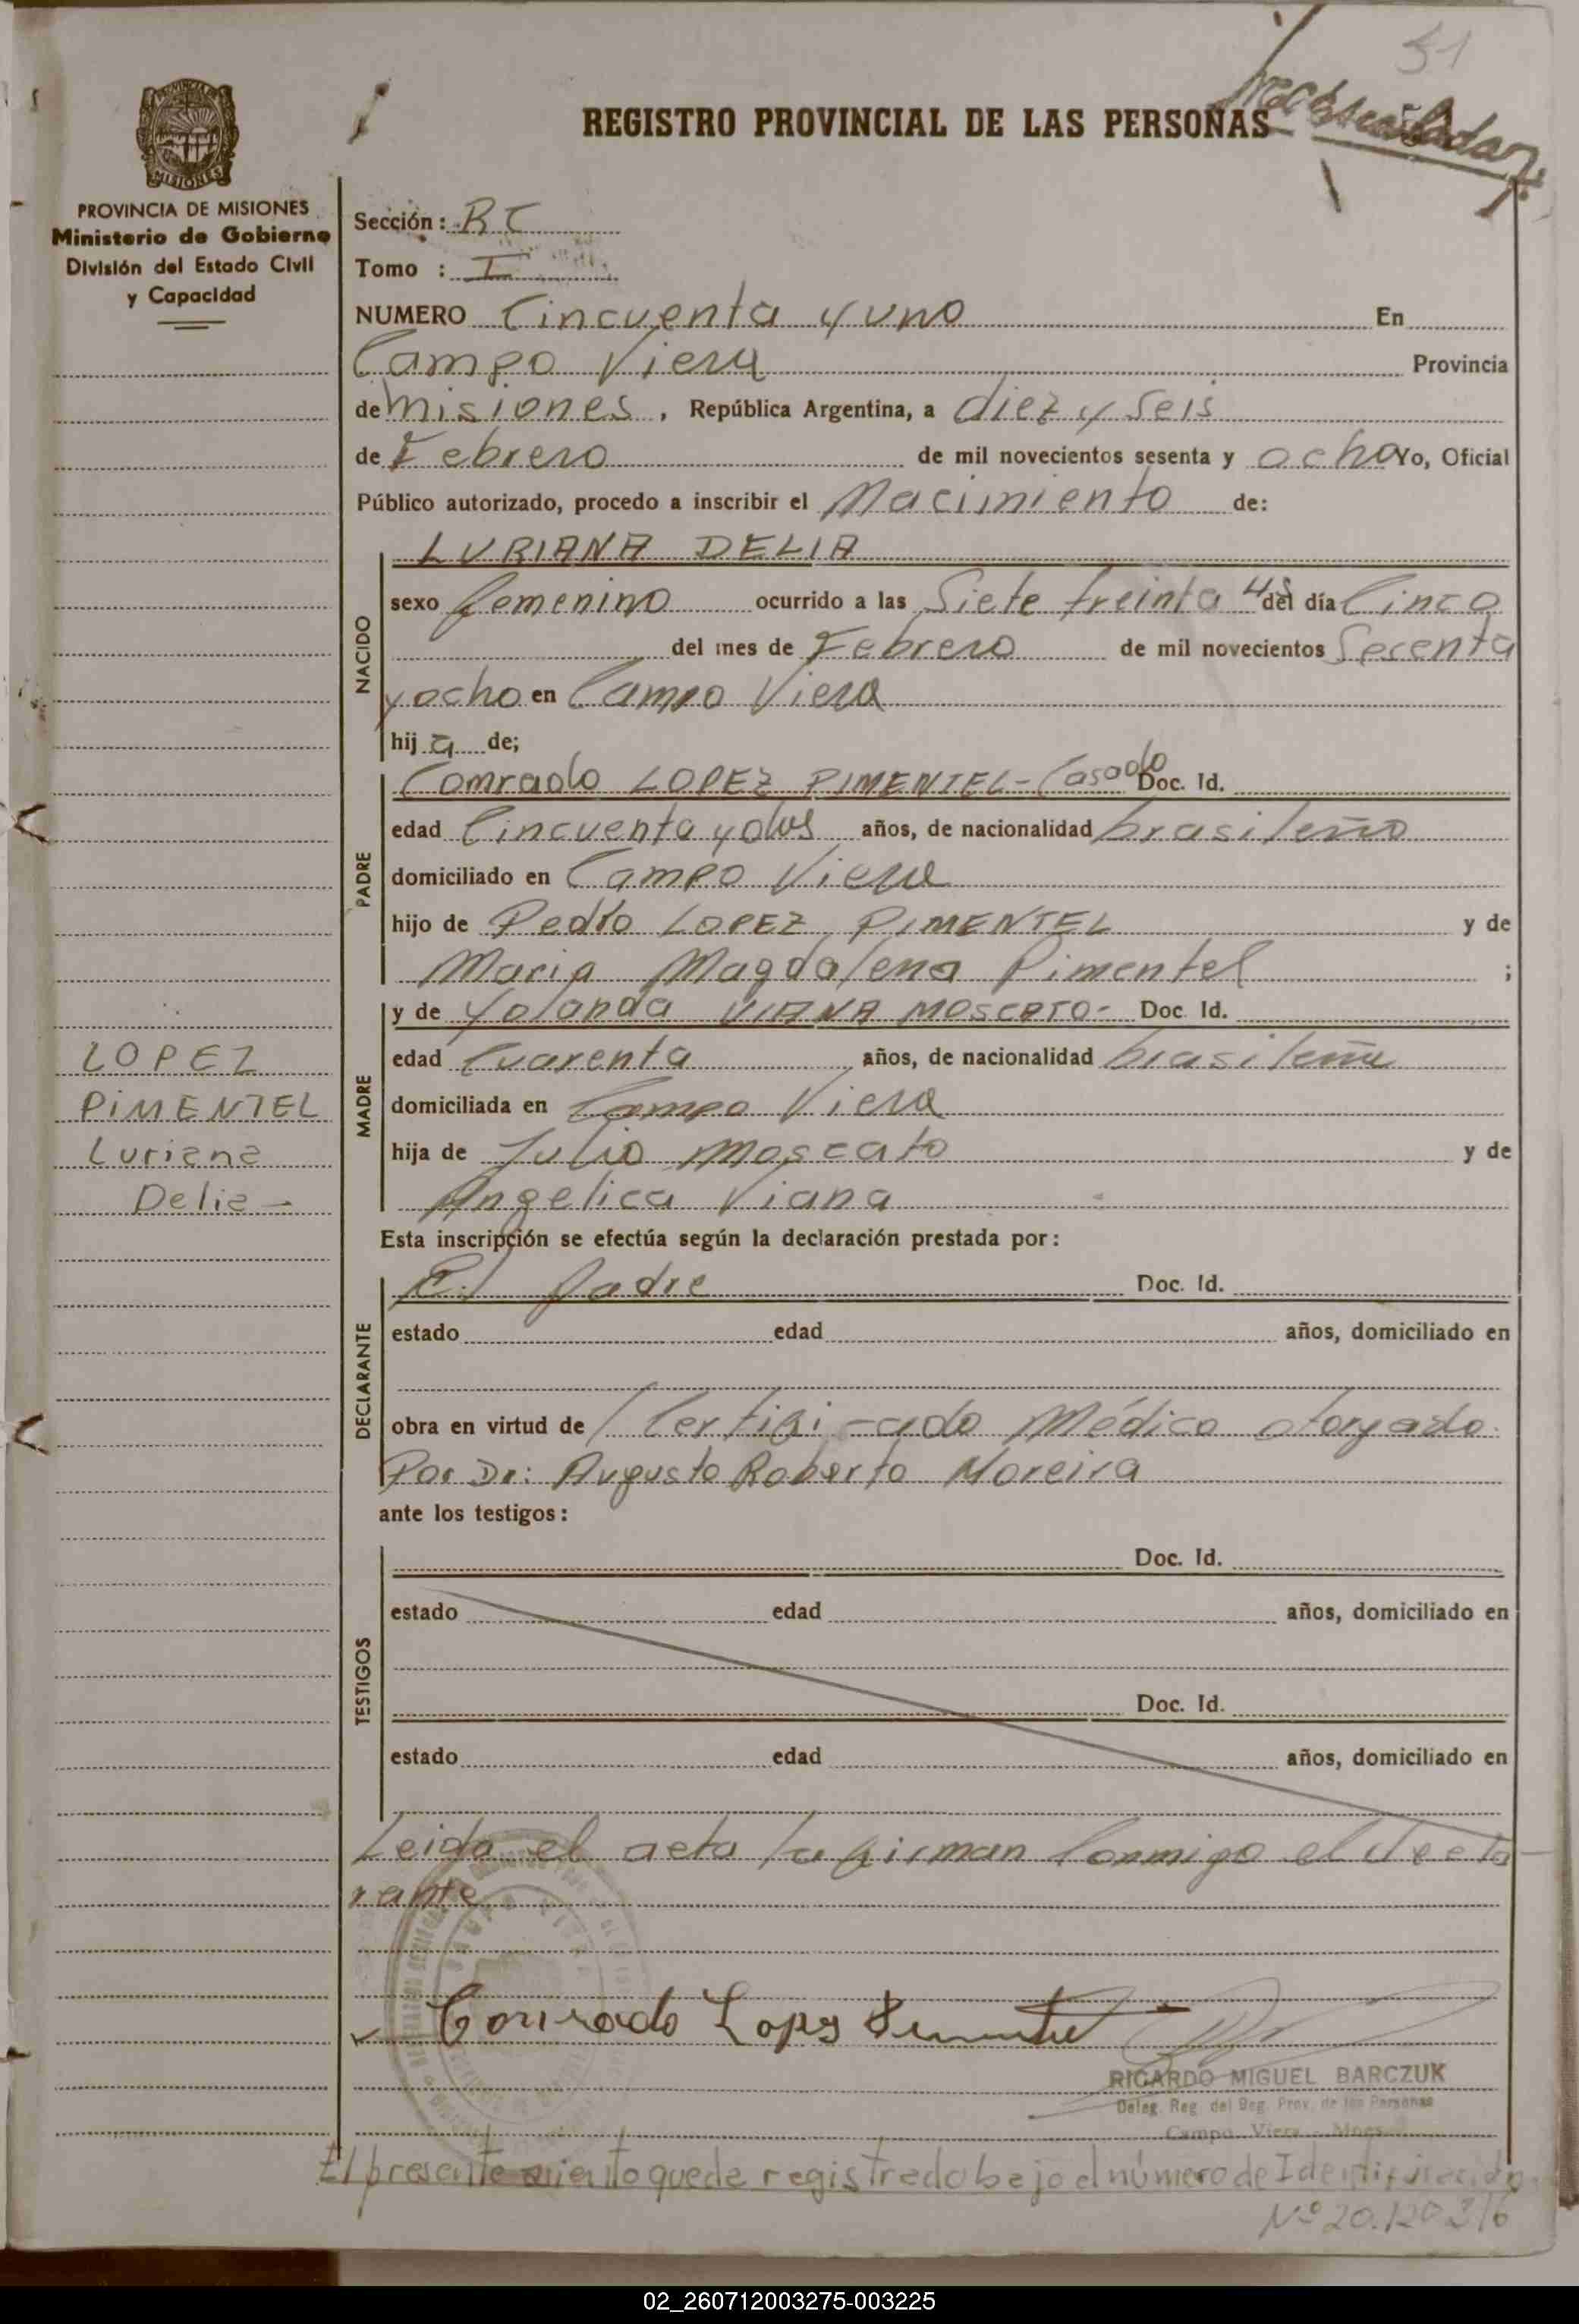 51
REGISTRO PROVINCIAL DE LAS PERSONAS
PROVINCIA DE MISIONES
Ministerio de Gobierno
División del Estado Civil
y Capacidad
Sección : R C
Tomo : I
NUMERO Cincuenta y uno En
Campo Viera Provincia
de Misiones, República Argentina, a diez y Seis
de Febrero de mil novecientos sesenta y ocho Yo, Oficial
Público autorizado, procedo a inscribir el Nacimiento de:
LURIANA DELIA
NACIDO
sexo femenino ocurrido a las Siete treinta hs del día Cinco
del mes de Febrero de mil novecientos Secenta
y ocho en Campo Viera
hija de;
PADRE
Comrado LOPEZ PIMENTEL - Casado Doc. Id.
edad Cincuenta y dos años, de nacionalidad brasileño
domiciliado en Campo Viera
hijo de Pedro LOPEZ PIMENTEL y de
Maria Magdalena Pimentel ;
MADRE
y de Yolanda VIANA MOSCATO - Doc. Id.
edad Cuarenta años, de nacionalidad brasileña
domiciliada en Campo Viera
hija de Julio Moscato y de
Angelica Viana
LOPEZ
PIMENTEL
Luriana
Delia -
Esta inscripción se efectúa según la declaración prestada por :
DECLARANTE
El Padre Doc. Id.
estado edad años, domiciliado en
obra en virtud de Certificado Médico otorgado
Por Dr: Augusto Roberto Moreira
ante los testigos :
TESTIGOS
Doc. Id.
estado edad años, domiciliado en
Doc. Id.
estado edad años, domiciliado en
Leida el acta la firman Conmigo el decla
rante
Conrado Lopez Pimentel
RICARDO MIGUEL BARCZUK
Deleg. Reg. del Reg. Prov. de las Personas
Campo Viera - Mnes.
El presente quede registrado bajo el número de Identificación
Nº 20.120.316
02_260712003275-003225